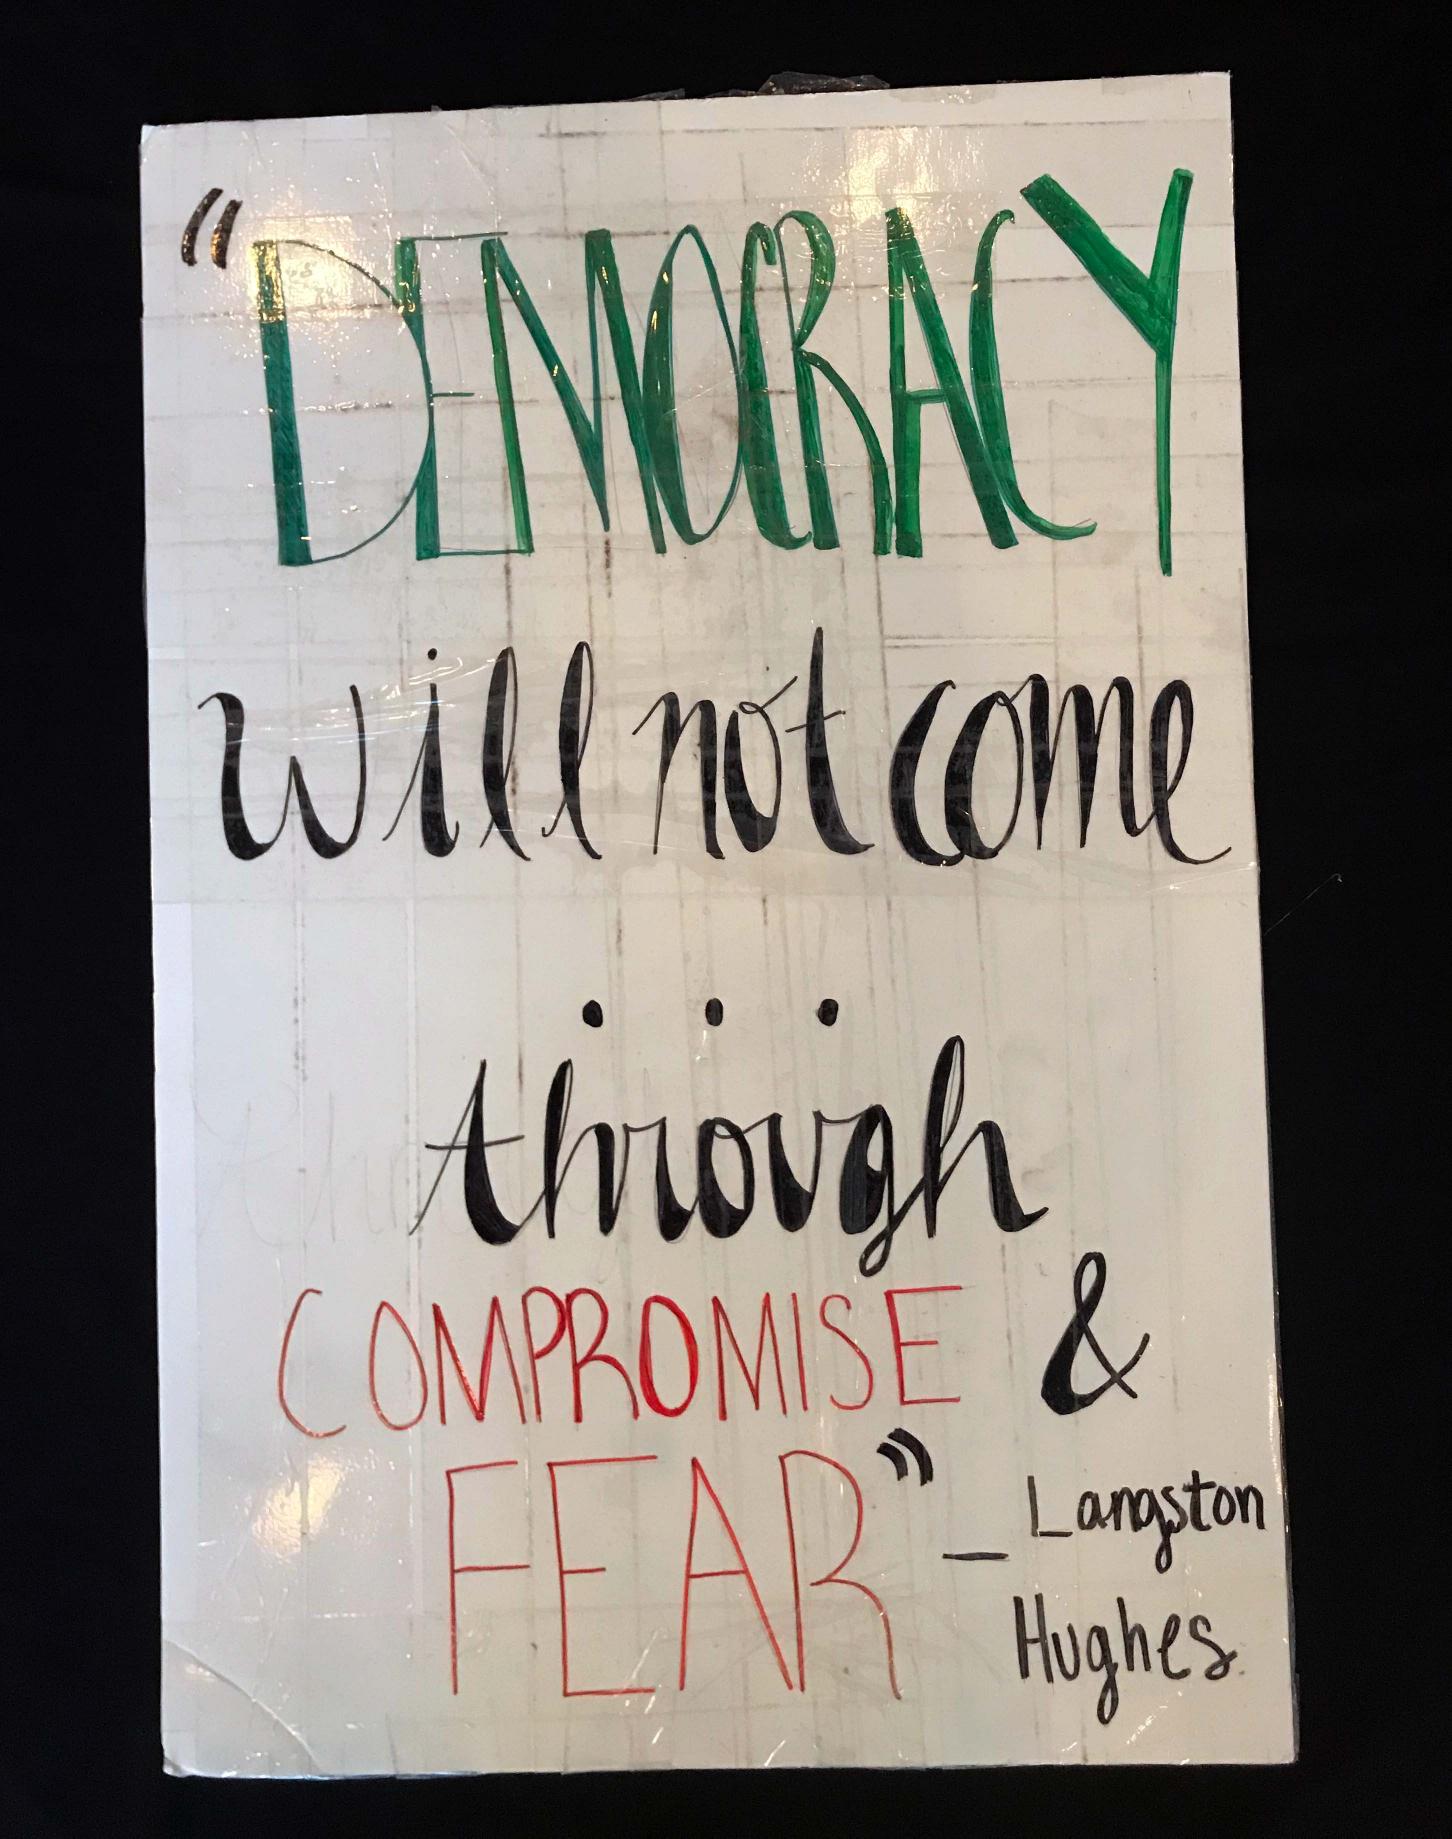 “DEMOCRACY
will not come
• • •
through
COMPROMISE &
FEAR” – Langston
Hughes.